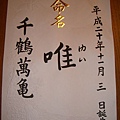 平成二十年十一月三日誕生
命名
唯
ゆい
千鶴萬亀